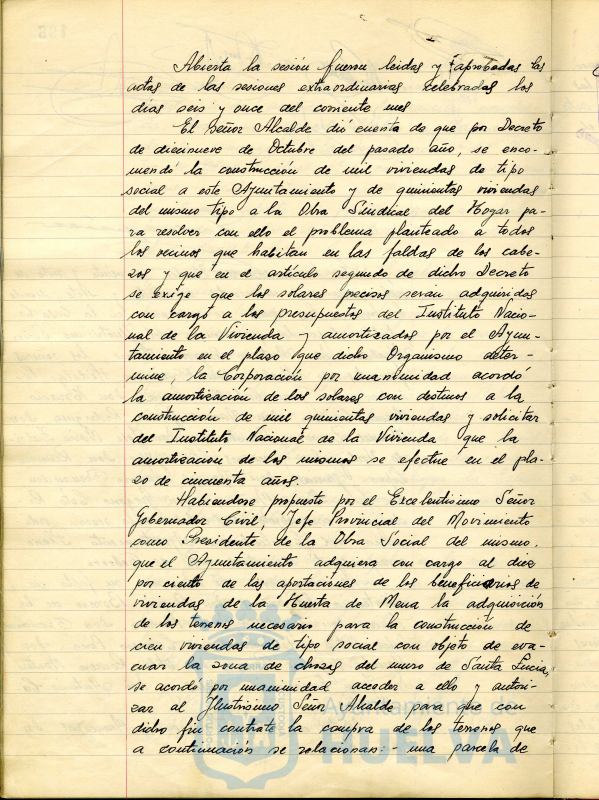 Abierta la sesión fueron leidas y aprobadas las
actas de las sesiones extraordinarias celebradas los
dias seis y once del corriente mes
El señor Alcalde dió cuenta de que por Decreto
de diecinueve de Octubre del pasado año, se enco-
mendó la construcción de mil viviendas de tipo
social a este Ayuntamiento y de quinientas viviendas
del mismo tipo a la Obra Sindical del Hogar pa-
ra resolver con ello el problema planteado a todos
los vecinos que habitan en las faldas de los cabe-
zos y que en el articulo segundo de dicho Decreto
se exige que los solares precisos seran adquiridos
con cargo a los presupuestos del Instituto Nacio-
nal de la Vivienda y amortizados por el Ayun-
tamiento en el plaso que dicho Organismo deter-
mine, la Corporación por unanimidad acordó
la amortización de los solares con destinos a la
construcción de mil quinientas viviendas y solicitar
del Instituto Nacional de la Vivienda que la
amortización de los mismos se efectue en el pla-
zo de cincuenta años.
Habiendose propuesto por el Excelentisimo Señor
Gobernador Civil, Jefe Provincial del Movimiento
como Presidente de la Obra Social del mismo,
que el Ayuntamiento adquiera con cargo al diez
por ciento de las aportaciones de los beneficiarios de
viviendas de la Huerta de Mena la adquisición
de los terrenos necesario para la construcción de
cien viviendas de tipo social con objeto de eva-
cuar la zona de chozas del muro de Santa Lucia,
se acordó por unanimidad acceder a ello y autori-
zar al Ilustrisimo Señor Alcalde para que con
dicho fin contrate la compra de los terrenos que
a continuación se relacionan:- una parcela de
Ayuntamiento de
HUELVA